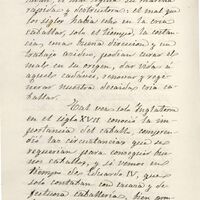 rápida y destructora: el mal que
los siglos habia echo en la cria
caballar, solo el tiempo, la constan
cia, una buena direccion y un
trabajo asiduo, podian curar el
mal en su origen, dar vida á
aquel cadáver, renovar y rege
nerar nuestra decaida cria ca
ballar.
Una vez sola Inglaterra
en el siglo XVII conoció la im
portancia del caballo, compren
dió las circunstancias que se
requerian para conseguir bue
nos caballos, y si vemos en
tiempo de Eduardo IV, que
solo contaban con escasa y de
fectuosa caballeria, bien